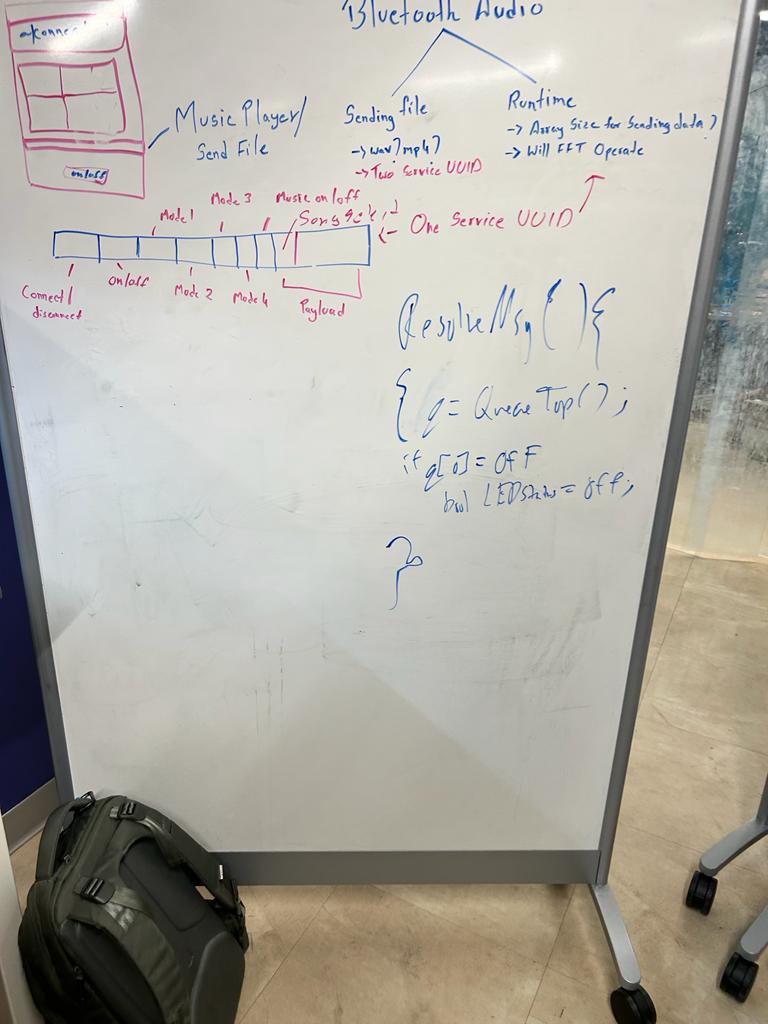 Bluetooth Audio
connect
on/off
Music Player/
Send File
Sending file
-> wav? mp4?
-> Two Service UUID
Runtime
-> Array Size for sending data?
-> Will FFT Operate
<- One Service UUID
Mode 1
Mode 3
Music on/off
Song
Connect/
disconnect
on/off
Mode 2
Mode 4
Payload
ResolveMsg( ){
{ q = QueueTop();
if q[0] = OFF
bool LEDStatus = off;
}